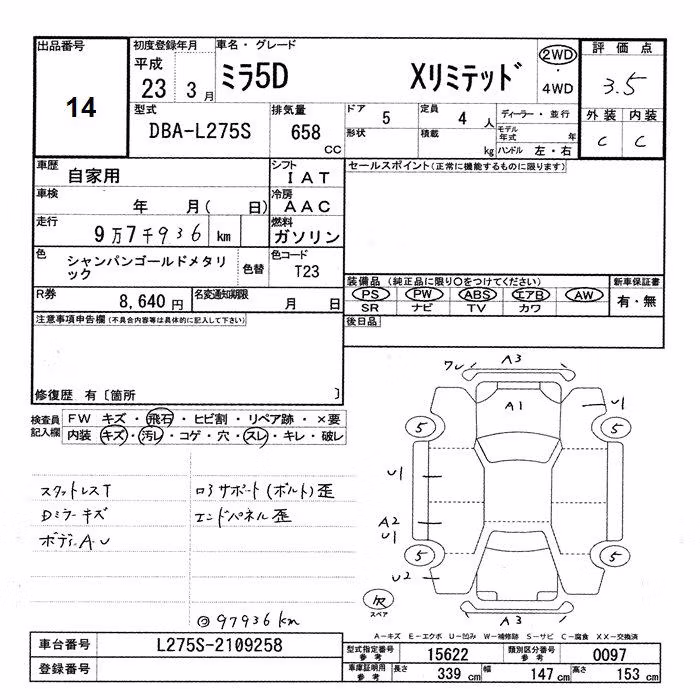 出品番号
14
初度登録年月
平成
23 3 月
車名・グレード
ミラ5D Xリミテッド
2WD
・
4WD
評価点
3.5
外装 内装
C C
型式
DBA-L275S
排気量
658 CC
ドア 5
定員 4 人
形状
積載 kg
ディーラー・並行
モデル年式 年
ハンドル 左・右
車歴 自家用
シフト IAT
セールスポイント(正常に機能するものに限ります)
車検 年 月( 日)
冷房 AAC
走行 9万7千936 km
燃料 ガソリン
色 シャンパンゴールドメタリック
色替
色コード T23
装備品 (純正品に限り○をつけてください)
新車保証書
PS PW ABS エアB AW
有・無
SR ナビ TV カワ
R券 8,640 円
名変通知期限 月 日
後日品
注意事項申告欄(不具合内容等は具体的に記入して下さい)
修復歴 有〔箇所 〕
検査員記入欄
FW キズ・飛石・ヒビ割・リペア跡・×要
内装 キズ・汚レ・コゲ・穴・スレ・キレ・破レ
スタットレスT
Dミラーキズ
ボディA.U
ロアサポート(ボルト)歪
エンドパネル歪
97936km
A3
A1
U1
5 5
U1
A2
U1
5 5
U2
欠
スペア
A3
A-キズ E-エクボ U-凹み W-補修跡 S-サビ C-腐食 XX-交換済
車台番号 L275S-2109258
登録番号
型式指定番号 参考 15622
類別区分番号 参考 0097
車庫証明用 参考 長さ 339 cm 幅 147 cm 高さ 153 cm